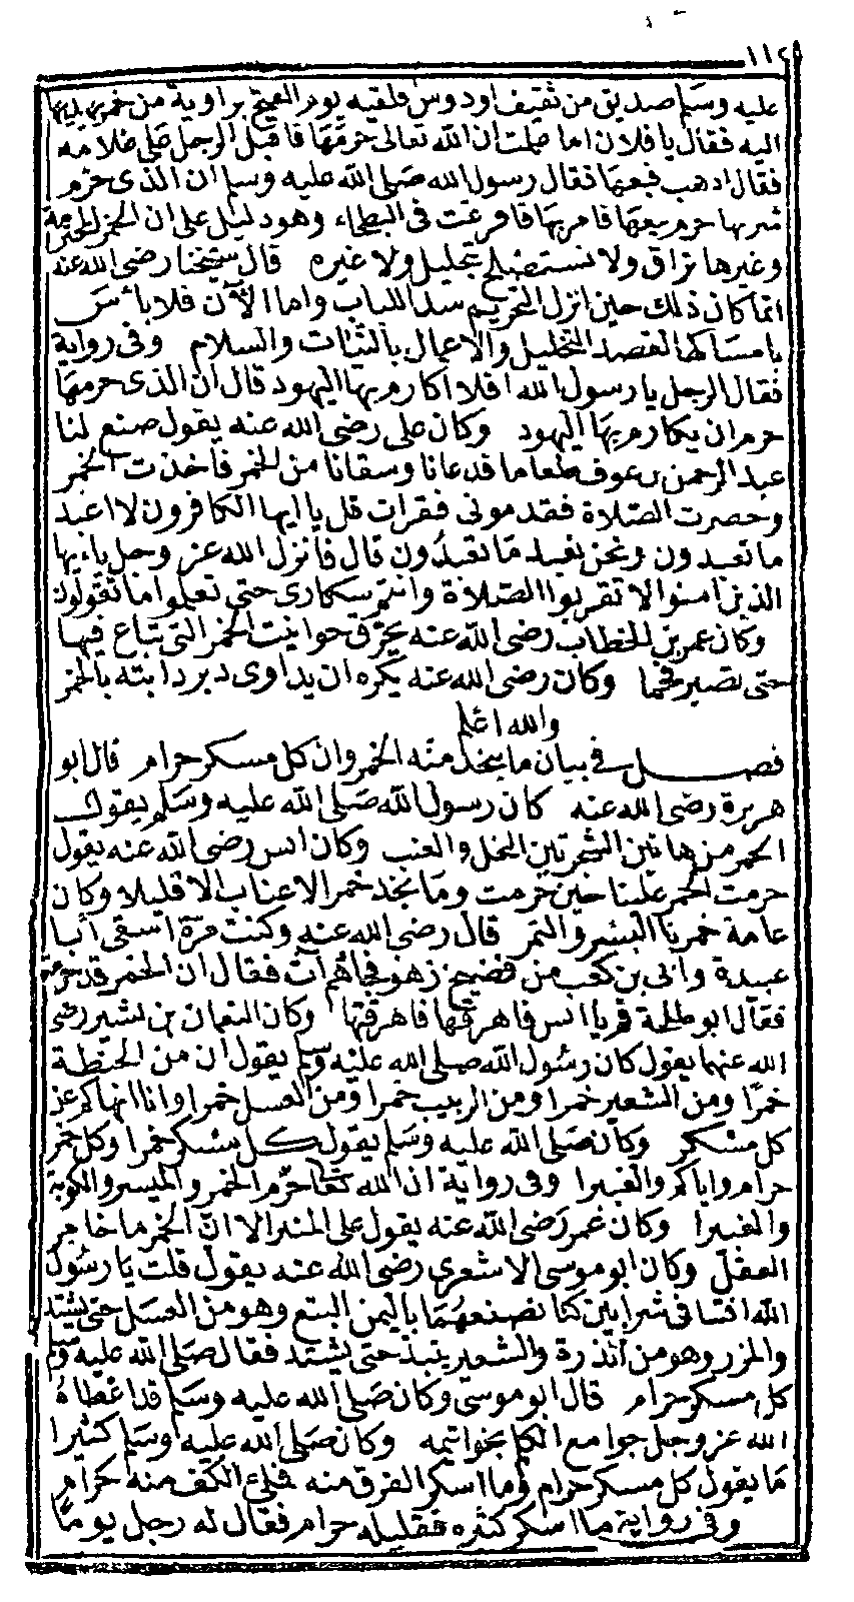 ١١٢
عليه وسلم صديق من ثقيف او دوس فلقيه يوم الفتح براوية من خمر يهديها
اليه فقال يا فلان اما علمت ان الله تعالى حرمها فاقبل الرجل على غلامه
فقال اذهب فبعها فقال رسول الله صلى الله عليه وسلم ان الذى حرم
شربها حرم بيعها فامر بها فافرغت فى البطحاء وهو دليل على ان الخمر المحترمة
وغيرها تراق ولا تستصلح بتخليل ولا غيره قال شيخنا رضى الله عنه
انما كان ذلك حين انزل التحريم سدا للباب واما الآن فلا بأس
بامساكها لقصد التخليل والاعمال بالنيات والسلام وفى رواية
فقال الرجل يا رسول الله افلا اكارم بها اليهود قال ان الذى حرمها
حرم ان يكارم بها اليهود وكان على رضى الله عنه يقول صنع لنا
عبد الرحمن بن عوف طعاما فدعانا وسقانا من الخمر فأخذت الخمر
وحضرت الصلاة فقدمونى فقرات قل يا ايها الكافرون لا اعبد
ما تعبدون ونحن نعبد ما تعبدون قال فأنزل الله عز وجل ياءيها
الذين امنوا لا تقربوا الصلاة وانتم سكارى حتى تعلموا ما تقولون
وكان عمر بن الخطاب رضى الله عنه يحرق حوانيت الخمر التى تباع فيها
حتى تصير فحما وكان رضى الله عنه يكره ان يداوى دبر دابته بالخمر
والله اعلم
فصل فى بيان ما يتخذ منه الخمر وان كل مسكر حرام قال ابو
هريرة رضى الله عنه كان رسول الله صلى الله عليه وسلم يقول
الخمر من هاتين الشجرتين النخل والعنب وكان انس رضى الله عنه يقول
حرمت الخمر علينا حين حرمت وما نجد خمر الاعناب الا قليلا وكان
عامة خمرنا البسر والتمر قال رضى الله عنه وكنت مرة اسقى أبا
عبيدة وأبى بن كعب من فضيخ زهو فجاءهم آت فقال ان الخمر قد حرمت
فقال ابو طلحة قم يا انس فاهرقها فاهرقتها وكان النعمان بن بشير رضى
الله عنهما يقول كان رسول الله صلى الله عليه وسلم يقول ان من الحنطة
خمرا ومن الشعير خمرا ومن الزبيب خمرا ومن العسل خمرا وانا انهاكم عن
كل مسكر وكان صلى الله عليه وسلم يقول كل مسكر خمرا وكل خمر
حرام واياكم والغبيرا وفى رواية ان الله تعا حرم الخمر والميسر والكوبة
والغبيرا وكان عمر رضى الله عنه يقول على المنبر الا ان الخمر ما خامر
العقل وكان ابو موسى الاشعرى رضى الله عنه يقول قلت يا رسول
الله افتنا فى شرابين كنا نصنعهما باليمن البتع وهو من العسل حتى يشتد
والمزر وهو من الذرة والشعير ينبذ حتى يشتد فقال صلى الله عليه وسلم
كل مسكر حرام قال ابو موسى وكان صلى الله عليه وسلم قد اعطاه
الله عز وجل جوامع الكلم بخواتيمه وكان صلى الله عليه وسلم كثيرا
ما يقول كل مسكر حرام وما اسكر الفرق منه فملء الكف منه حرام
وفى رواية ما اسكر كثره فقليله حرام فقال له رجل يوما